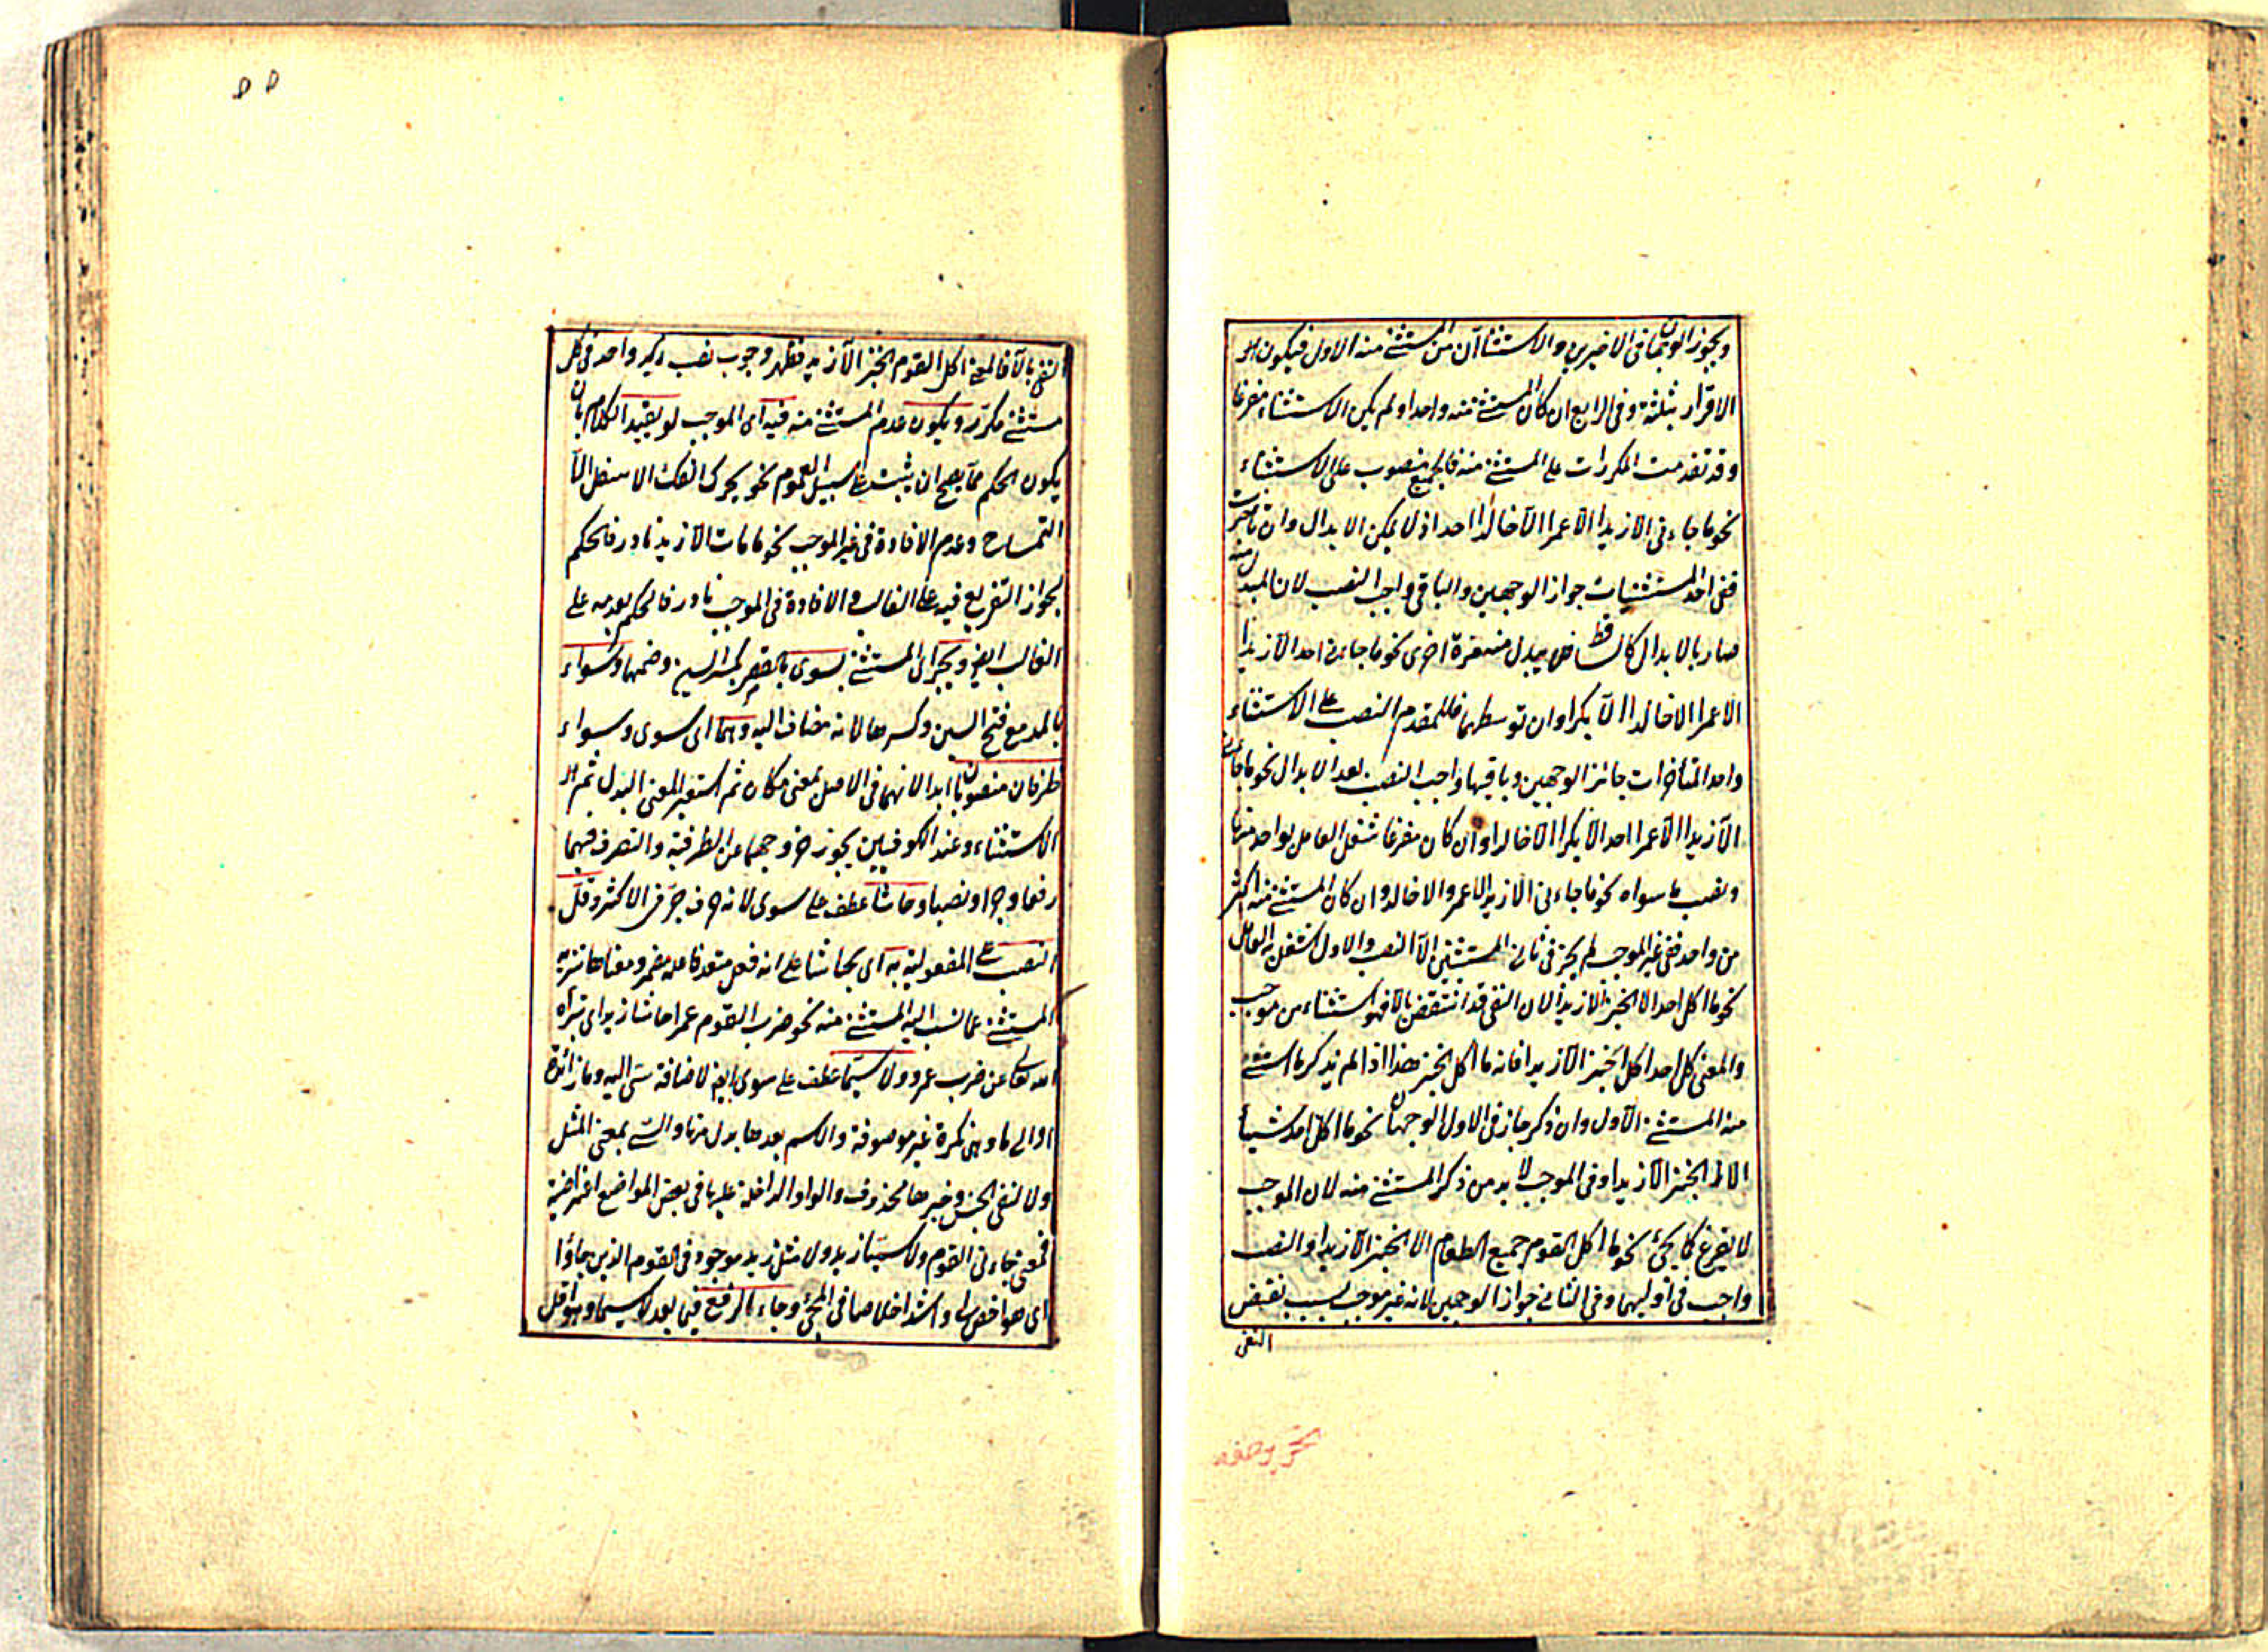 ويجوز الوجهان فى الاخيرين والاستثناآن من المستثنى منه الاول فيكون
الاقرار بثلثة وفى الرابع ان كان المستثنى منه واحدا ولم يكن الاستثناء مفرغا
وقد تقدمت المكررات على المستثنى منه فالجميع منصوب على الاستثناء
نحو ما جاءنى الا زيدا الا عمرا الا خالدا احد اذ لا يمكن الابدال وان تأخرت
ففى احد المستثنيات جواز الوجهين والباقى واجب النصب لان المبدل منه
صار بالابدال كالساقط فلا يبدل منه مرة اخرى نحو ما جاءنى احد الا زيدا
الا عمرا الا خالدا الا بكرا وان توسطها فللمقدم النصب على الاستثناء
واحد المتأخرات جائز الوجهين وباقيها واجب النصب بعد الابدال نحو ما جاءنى
الا زيدا الا عمرا احد الا بكرا الا خالدا وان كان مفرغا شغل العامل بواحد منها
ونصب ما سواه نحو ما جاءنى الا زيد الا عمرو الا خالد وان كان المستثنى منه اكثر
من واحد ففى غير الموجب لم يجز فى ثانى المستثنى الا النصب والاول اشتغل به العامل
نحو ما اكل احد الا الخبز الا زيدا لان النفى قد انتقض بالا فهو استثناء من موجب
والمعنى كل احد اكل الخبز الا زيدا فانه ما اكل الخبز هذا اذا لم يذكر ما استثنى
منه المستثنى الاول وان ذكر جاز فى الاول الوجهان نحو ما اكل احد شيئا
الا الخبز الا زيدا وفى الموجب لا بد من ذكر المستثنى منه لان الموجب
لا يفرغ كما يجئ نحو ما اكل القوم جميع الطعام الا الخبز الا زيدا والنصب
واجب فى اوليهما وفى الثانى جواز الوجهين لانه غير موجب بسبب نقيض
النفى
٥٥
النفى بالا فالمعنى اكل القوم الخبز الا زيد فظهر وجوب نصب زيد واحد فى كل
مستثنى مكرر ويكون عدم المستثنى منه فيه اى الموجب لو يفيد الكلام بان
يكون الحكم مما يصح ان يثبت على سبيل العموم نحو يحرك الفك الاسفل الا
التمساح وعدم الافادة فى غير الموجب نحو ما مات الا زيد نادر فالحكم
بجواز التفريغ فيه على الغالب والافادة فى الموجب نادر فالحكم بعدمه على
الغالب ايضا ويجر اى المستثنى بسوى بالقصر بكسر السين وضمها وسواء
بالمد مع فتح السين وكسرها لانه مضاف اليه وهما اى سوى وسواء
ظرفان منصوبان ابدا لانهما فى الاصل بمعنى مكان ثم استعير لمعنى البدل ثم
الاستثناء وعند الكوفيين يجوز خروجهما عن الظرفية والتصرف فيهما
رفعا وجرا ونصبا وحاشا عطف على سوى لانه حرف جر فى الاكثر وقل
النصب على المفعولية به اى بحاشا على انه فعل متعد فاعله مضمر ومعناها تنزيه
المستثنى عما نسب اليه المستثنى منه نحو ضرب القوم عمرا حاشا زيدا اى تبرأه
الله تعالى عن ضرب عمرو ولا سيما عطف على سوى ايضا لاضافة سى اليه وما زائدة
او الى ما وهى نكرة غير موصوفة والاسم بعدها بدل منها والسى بمعنى المثل
ولا لنفى الجنس وخبرها محذوف والواو الداخلة عليها فى بعض المواضع اعتراضية
فمعنى جاءنى القوم ولا سيما زيد ولا مثل زيد موجود فى القوم الذين جاؤا
اى هو اخص واشد اخلاصا فى المجئ وجاء الرفع فيما بعد لا سيما وهو اقل